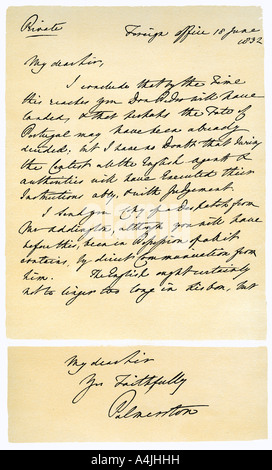 Private
Foreign office 18 June
1832
My dear Sir,
I conclude that by the Time
this reaches you Don Pedro will have
landed, & that perhaps the Fate of
Portugal may have been already
decided, but I have no Doubt that during
the Contest all the English agents &
authorities will have Executed their
Instructions ably, & with Judgement.
I send you Copy of a Despatch from
Mr although you will have
before this, been in Possession of what it
contains, by direct Communication from
him. The English ought certainly
not to linger too long in Lisbon, but
My dear Sir
Yrs Faithfully
Palmerston
alamy
A4JHHH